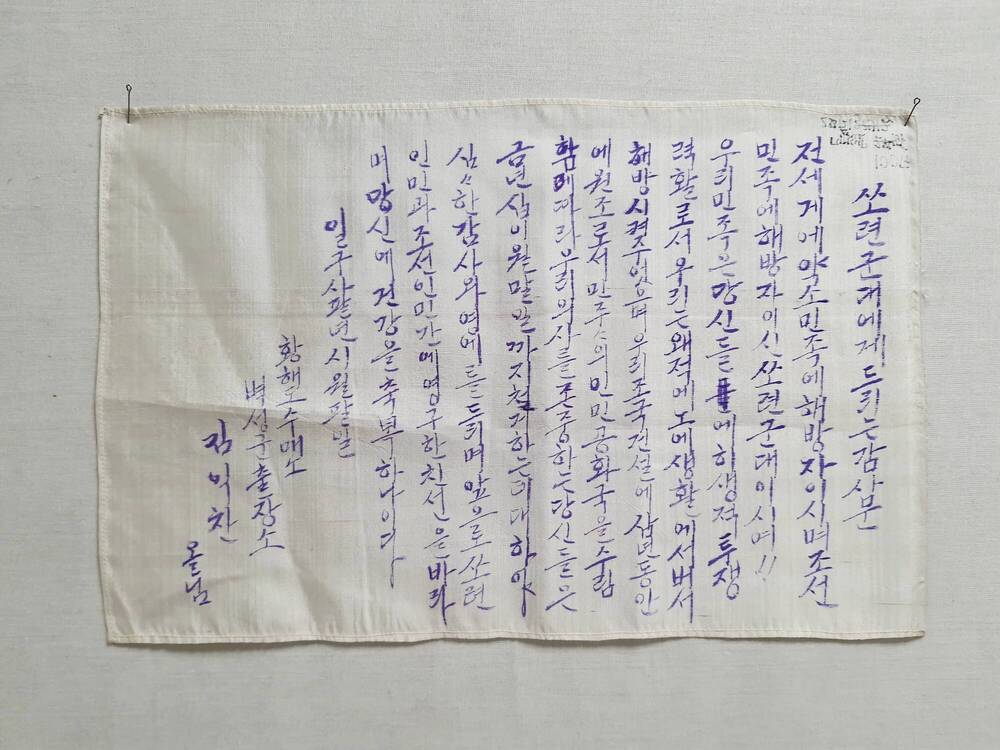 쏘련군대에게드리는감사문
전세게에약소민족에해방자이시며조선
민족에해방자이신쏘련군대이시여!!
우리민족은당신들에히생적투쟁
력활로서우리는왜적에노예생활에서버서
해방시켜주었으며우리조국건설에삼년동안
에원조로서민주주의인민공화국을수립
함에따라우리의사를존중하는당신들은
금년십이월말일까지철거하는데대하야
심々한감사와영예를듸리며앞으로쏘련
인민과조선인민간에영구한친선을바라
며망신에건강을축복하나이다
일구사팔년시월팔일
황해도수매소
벽성군출장소
김익찬
올님